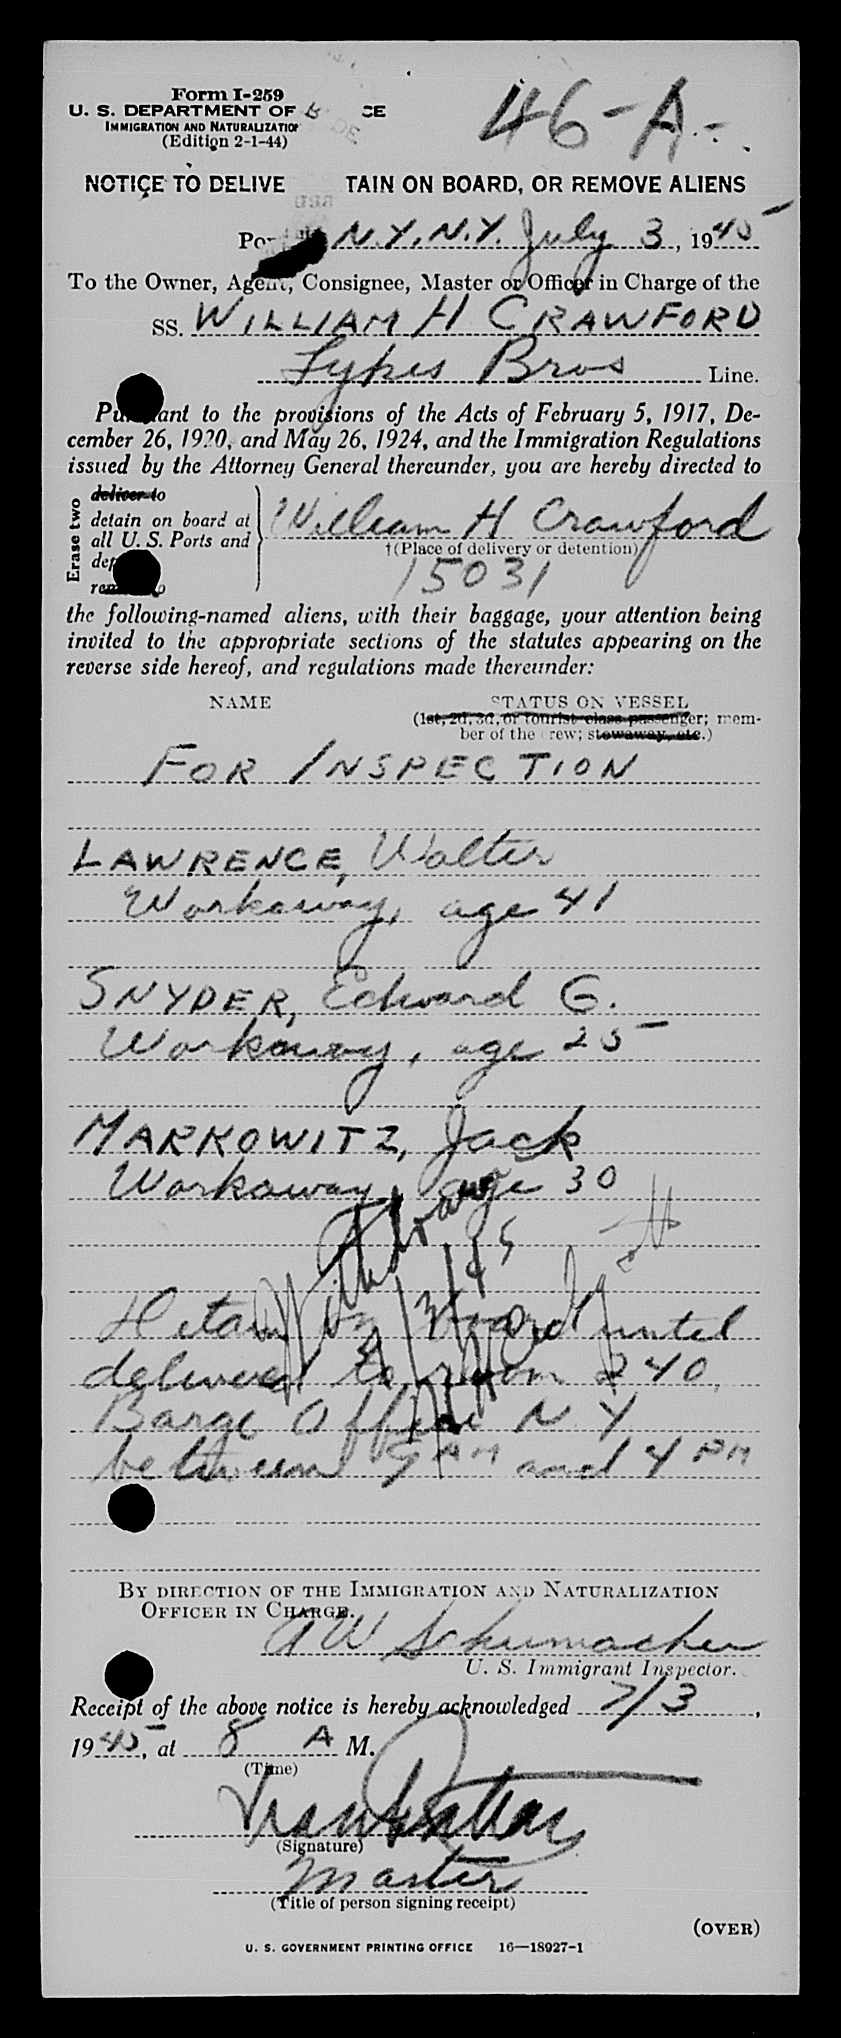 Form I-259
46-A-.
U. S. DEPARTMENT OF CE
IMMIGRATION AND NATURALIZATION
(Edition 2-1-44)
NOTICE TO DELIVE TAIN ON BOARD, OR REMOVE ALIENS
Po N.Y. N.Y. July 3, 1945
To the Owner, Agent, Consignee, Master or Officer in Charge of the
SS. WILLIAM H CRAWFORD
Bros Line.
Pursuant to the provisions of the Acts of February 5, 1917, De-
cember 26, 1920, and May 26, 1924, and the Immigration Regulations
issued by the Attorney General thereunder, you are hereby directed to
Erase two
deliver to
detain on board at
all U. S. Ports and
William H Crawford
†(Place of delivery or detention)
dep
remo to
15031
the following-named aliens, with their baggage, your attention being
invited to the appropriate sections of the statutes appearing on the
reverse side hereof, and regulations made thereunder:
NAME STATUS ON VESSEL
(1st, 2d, 3d, or tourist class passenger; mem-
ber of the crew; stowaway, etc.)
FOR INSPECTION
LAWRENCE, Walter
Workaway, age 41
SNYDER, Edward G.
Workaway, age 25
MARKOWITZ, Jack
Workaway, age 30
Withdrawn
Detain on board until
delivered to room 240,
Barge Office N Y
between 9 AM and 4 PM
BY DIRECTION OF THE IMMIGRATION AND NATURALIZATION
OFFICER IN CHARGE.
A W Schumacher
U. S. Immigrant Inspector.
Receipt of the above notice is hereby acknowledged 7/3,
1945, at 8 A M.
(Time)
(Signature)
Master
(Title of person signing receipt)
(OVER)
U. S. GOVERNMENT PRINTING OFFICE 16—18927-1